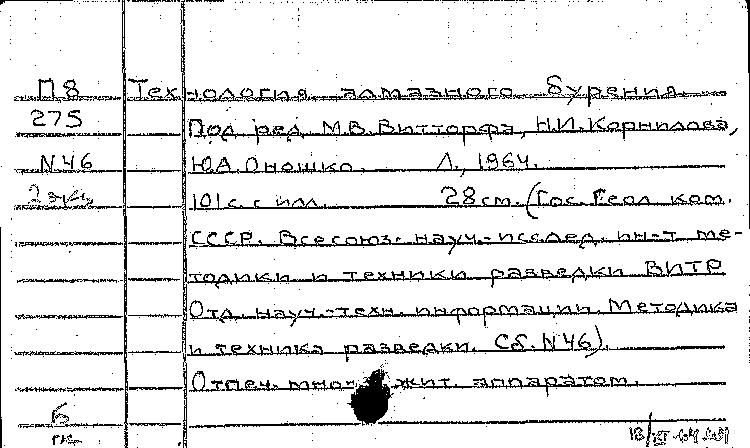 П8 Технология алмазного бурения.
275 Под ред. М.В. Витторфа, Н.И. Корнилова,
N46 Ю.А. Оношко. Л., 1964.
2 экз 101 с. с илл. 28 см. (Гос. Геол. ком.
СССР. Всесоюз. науч.-исслед. ин-т ме-
тодики и техники разведки ВИТР
Отд. науч.-техн. информации. Методика
и техника разведки. Сб. N46).
Отпеч. множ жит. аппаратом.
Б